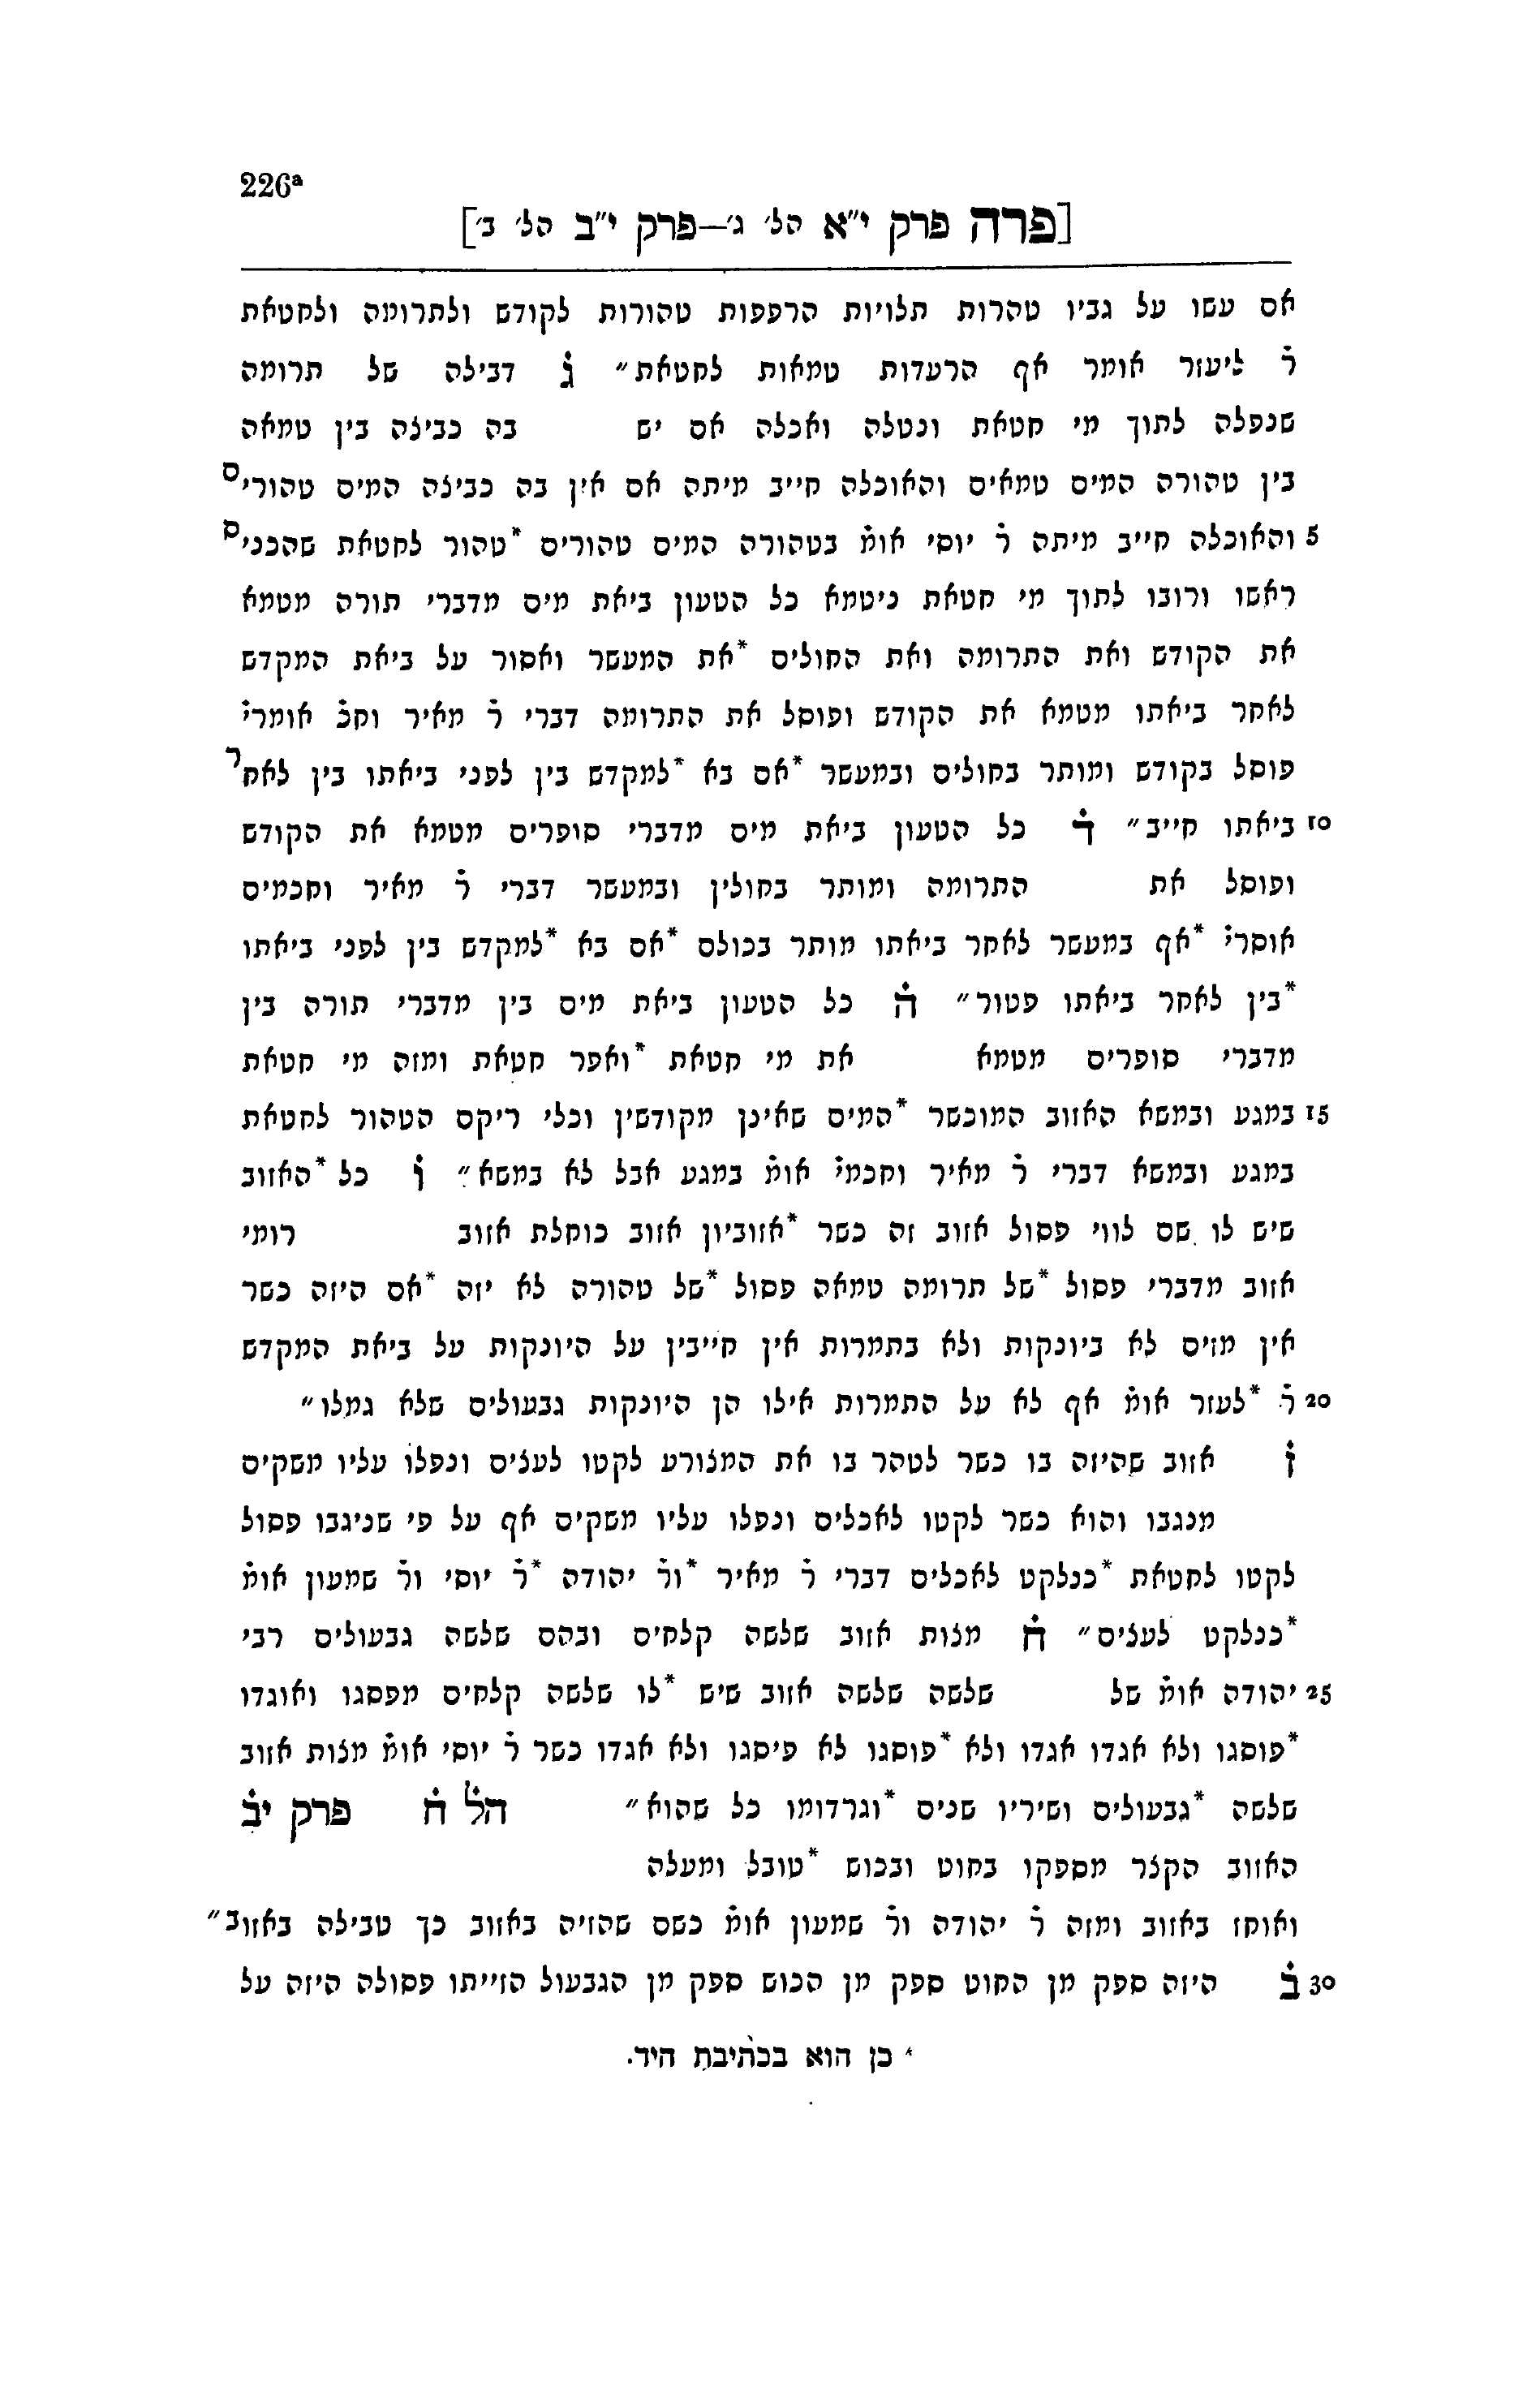 226ª
[פרה פרק י״א הל׳ ג׳—פרק י״ב הל׳ ב׳]
אם עשו על גביו טהרות תלויות הרפפות טהורות לקודש ולתרומה ולחטאת
ר̇ ליעזר אומר אף הרעדות טמאות לחטאת״ ג̇ דבילה של תרומה
שנפלה לתוך מי חטאת ונטלה ואכלה אם יש בה כביצה בין טמאה
בין טהורה המים טמאים והאוכלה חייב מיתה אם אין בה כביצה המים טהורים
5 והאוכלה חייב מיתה ר̇ יוסי אומ̇ בטהורה המים טהורים *טהור לחטאת שהכנים
ראשו ורובו לתוך מי חטאת ניטמא כל הטעון ביאת מים מדברי תורה מטמא
את הקודש ואת התרומה ואת החולים *את המעשר ואסור על ביאת המקדש
לאחר ביאתו מטמא את הקודש ופוסל את התרומה דברי ר̇ מאיר וחכ̇ אומרי̇
פוסל בקודש ומותר בחולים ובמעשר *אם בא *למקדש בין לפני ביאתו בין לאחר
10 ביאתו חייב״ ד̇ כל הטעון ביאת מים מדברי סופרים מטמא את הקודש
ופוסל את התרומה ומותר בחולין ובמעשר דברי ר̇ מאיר וחכמים
אוסרי̇ *אף במעשר לאחר ביאתו מותר בכולם *אם בא *למקדש בין לפני ביאתו
*בין לאחר ביאתו פטור״ ה̇ כל הטעון ביאת מים בין מדברי תורה בין
מדברי סופרים מטמא את מי חטאת *ואפר חטאת ומזה מי חטאת
15 במגע ובמשא האזוב המוכשר *המים שאינן מקודשין וכלי ריקם הטהור לחטאת
במגע ובמשא דברי ר̇ מאיר וחכמי̇ אומ̇ במגע אבל לא במשא״ ו̇ כל *האזוב
שיש לו שם לווי פסול אזוב זה כשר *אזוביון אזוב כוחלת אזוב רומי
אזוב מדברי פסול *של תרומה טמאה פסול *של טהורה לא יזה *אם היזה כשר
אין מזים לא ביונקות ולא בתמרות אין חייבין על היונקות על ביאת המקדש
20 ר̇ *לעזר אומ̇ אף לא על התמרות אילו הן היונקות גבעולים שלא גמלו״
ז̇ אזוב שהיזה בו כשר לטהר בו את המצורע לקטו לעצים ונפלו עליו משקים
מנגבו והוא כשר לקטו לאכלים ונפלו עליו משקים אף על פי שניגבו פסול
לקטו לחטאת *כנלקט לאכלים דברי ר̇ מאיר *ור̇ יהודה *ר̇ יוסי ור̇ שמעון אומ̇
*כנלקט לעצים״ ח̇ מצות אזוב שלשה קלחים ובהם שלשה גבעולים רבי
25 יהודה אומ̇ של שלשה שלשה אזוב שיש *לו שלשה קלחים מפסגו ואוגדו
*פוסגו ולא אגדו אגדו ולא *פוסגו לא פיסגו ולא אגדו כשר ר̇ יוסי אומ̇ מצות אזוב
שלשה *גבעולים ושיריו שנים *וגרדומו כל שהוא״ הל̇ ח̇ פרק יב̇
האזוב הקצר מספקו בחוט ובכוש *טובל ומעלה
ואוחז באזוב ומזה ר̇ יהודה ור̇ שמעון אומ̇ כשם שהזיה באזוב כך טבילה באזוב״
30 ב̇ היזה ספק מן החוט ספק מן הכוש ספק מן הגבעול הזייתו פסולה היזה על
* כן הוא בכתיבת היד.